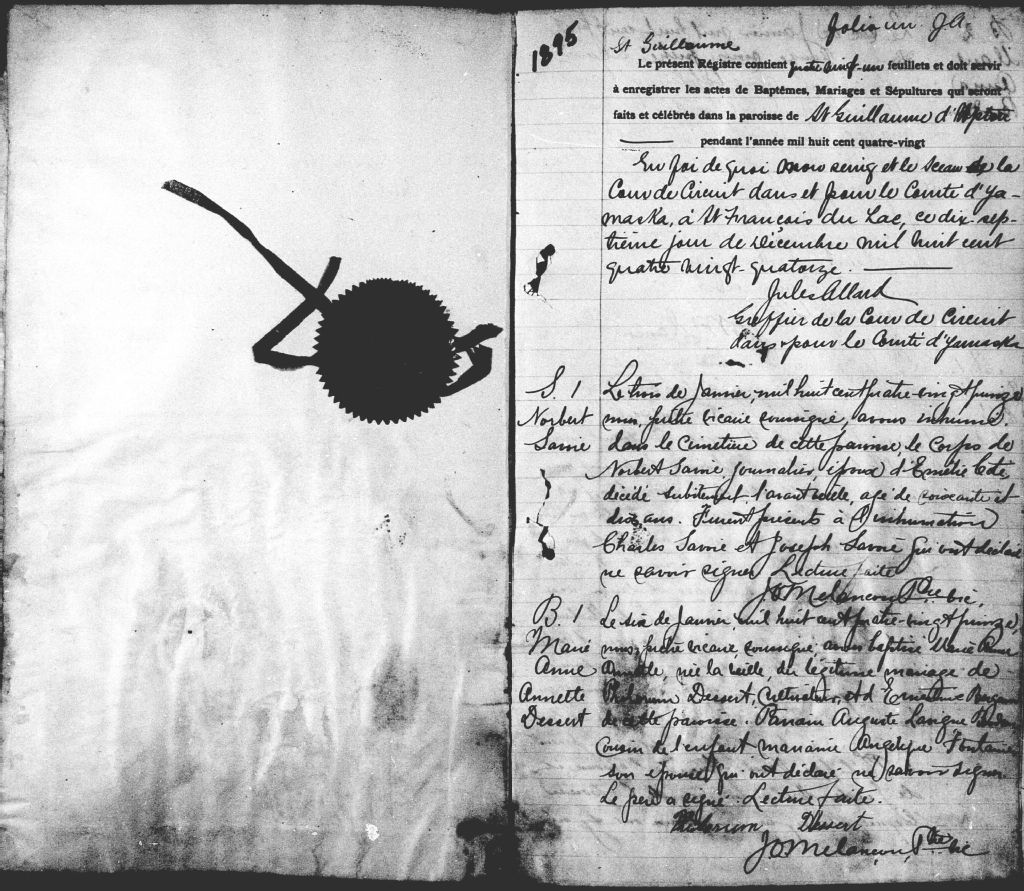 1895
Folio un. J.A.
St Guillaume
Le présent Régistre contient quatre vingt-un feuillets et doit servir
à enregistrer les actes de Baptêmes, Mariages et Sépultures qui seront
faits et célébrés dans la paroisse de St Guillaume d'Upton
pendant l'année mil huit cent quatre-vingt
En foi de quoi mon seing et le sceau de la
Cour de Circuit dans et pour le Comté d'Ya-
maska, à St François du Lac, ce dix-sep-
tième jour de Décembre mil huit cent
quatre vingt-quatorze.
Jules Allard
Greffier de la Cour de Circuit
dans & pour le Comté d'Yamaska
S. 1
Norbert
Savie
Le trois de Janvier, mil huit cent quatre-vingt quinze
nous, prêtre vicaire soussigné, avons inhumé
dans le Cimetière de cette paroisse, le corps de
Norbert Savie, journalier, époux d'Emélie Coté,
décédé subitement l'avant veille, agé de soixante et
dix ans. Furent présents à l'inhumation
Charles Savie et Joseph Savie qui ont déclaré
ne savoir signer Lecture faite
JO Melançon Ptre vic.
B. 1
Marie
Anne
Annette
Dessert
Le six de Janvier, mil huit cent quatre-vingt quinze,
nous, prêtre vicaire, soussigné, avons baptisé Marie Anne
Annette, née la veille, du légitime mariage de
Dessert, Cultivateur, et d'Ernestine
de cette paroisse. Parrain Auguste Lavigne
cousin de l'enfant marraine Angélique Fontaine
son épouse qui ont déclaré ne savoir signer
Le père a signé. Lecture faite.
Dessert
JO Melançon, Ptre vic